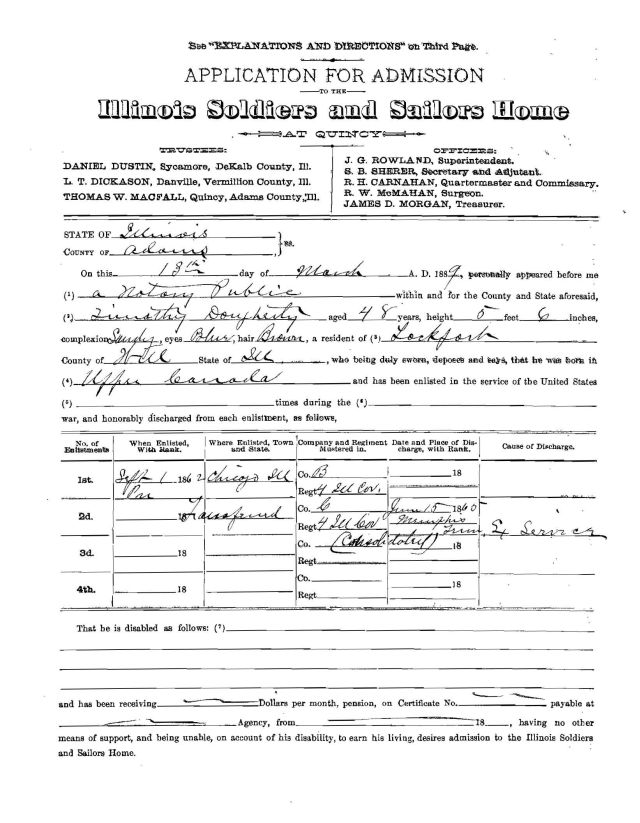 See "EXPLANATIONS AND DIRECTIONS" on Third Page.
APPLICATION FOR ADMISSION
TO THE
Illinois Soldiers and Sailors Home
AT QUINCY
TRUSTEES:
DANIEL DUSTIN, Sycamore, DeKalb County, Ill.
L. T. DICKASON, Danville, Vermillion County, Ill.
THOMAS W. MACFALL, Quincy, Adams County, Ill.
OFFICERS:
J. G. ROWLAND, Superintendent.
S. B. SHERER, Secretary and Adjutant.
R. H. CARNAHAN, Quartermaster and Commissary.
R. W. McMAHAN, Surgeon.
JAMES D. MORGAN, Treasurer.
STATE OF Illinois
COUNTY OF Adams, } ss.
On this 13th day of March A. D. 1889, personally appeared before me
(1) a Notary Public within and for the County and State aforesaid,
(2) Timothy Dougherty aged 48 years, height 5 feet 6 inches,
complexion Sandy, eyes Blue, hair Brown, a resident of (3) Lockport
County of Will State of Ill, who being duly sworn, deposes and says, that he was born in
(4) Upper Canada and has been enlisted in the service of the United States
(5) times during the (6)
war, and honorably discharged from each enlistment, as follows,
No. of Enlistments When Enlisted, With Rank. Where Enlisted, Town and State. Company and Regiment Mustered in. Date and Place of Discharge, with Rank. Cause of Discharge.
1st. Sept 1 1862 Chicago Ill Co. B 18
Pri Regt 4 Ill Cav.
2d. 18 Transferred Co. C June 15 1865
Regt 4 Ill Cav Memphis Tenn. Ex Service
3d. 18 Co. (Consolidated) 18
Regt
4th. 18 Co. 18
Regt
That he is disabled as follows: (7)
and has been receiving Dollars per month, pension, on Certificate No. payable at
Agency, from 18, having no other
means of support, and being unable, on account of his disability, to earn his living, desires admission to the Illinois Soldiers
and Sailors Home.